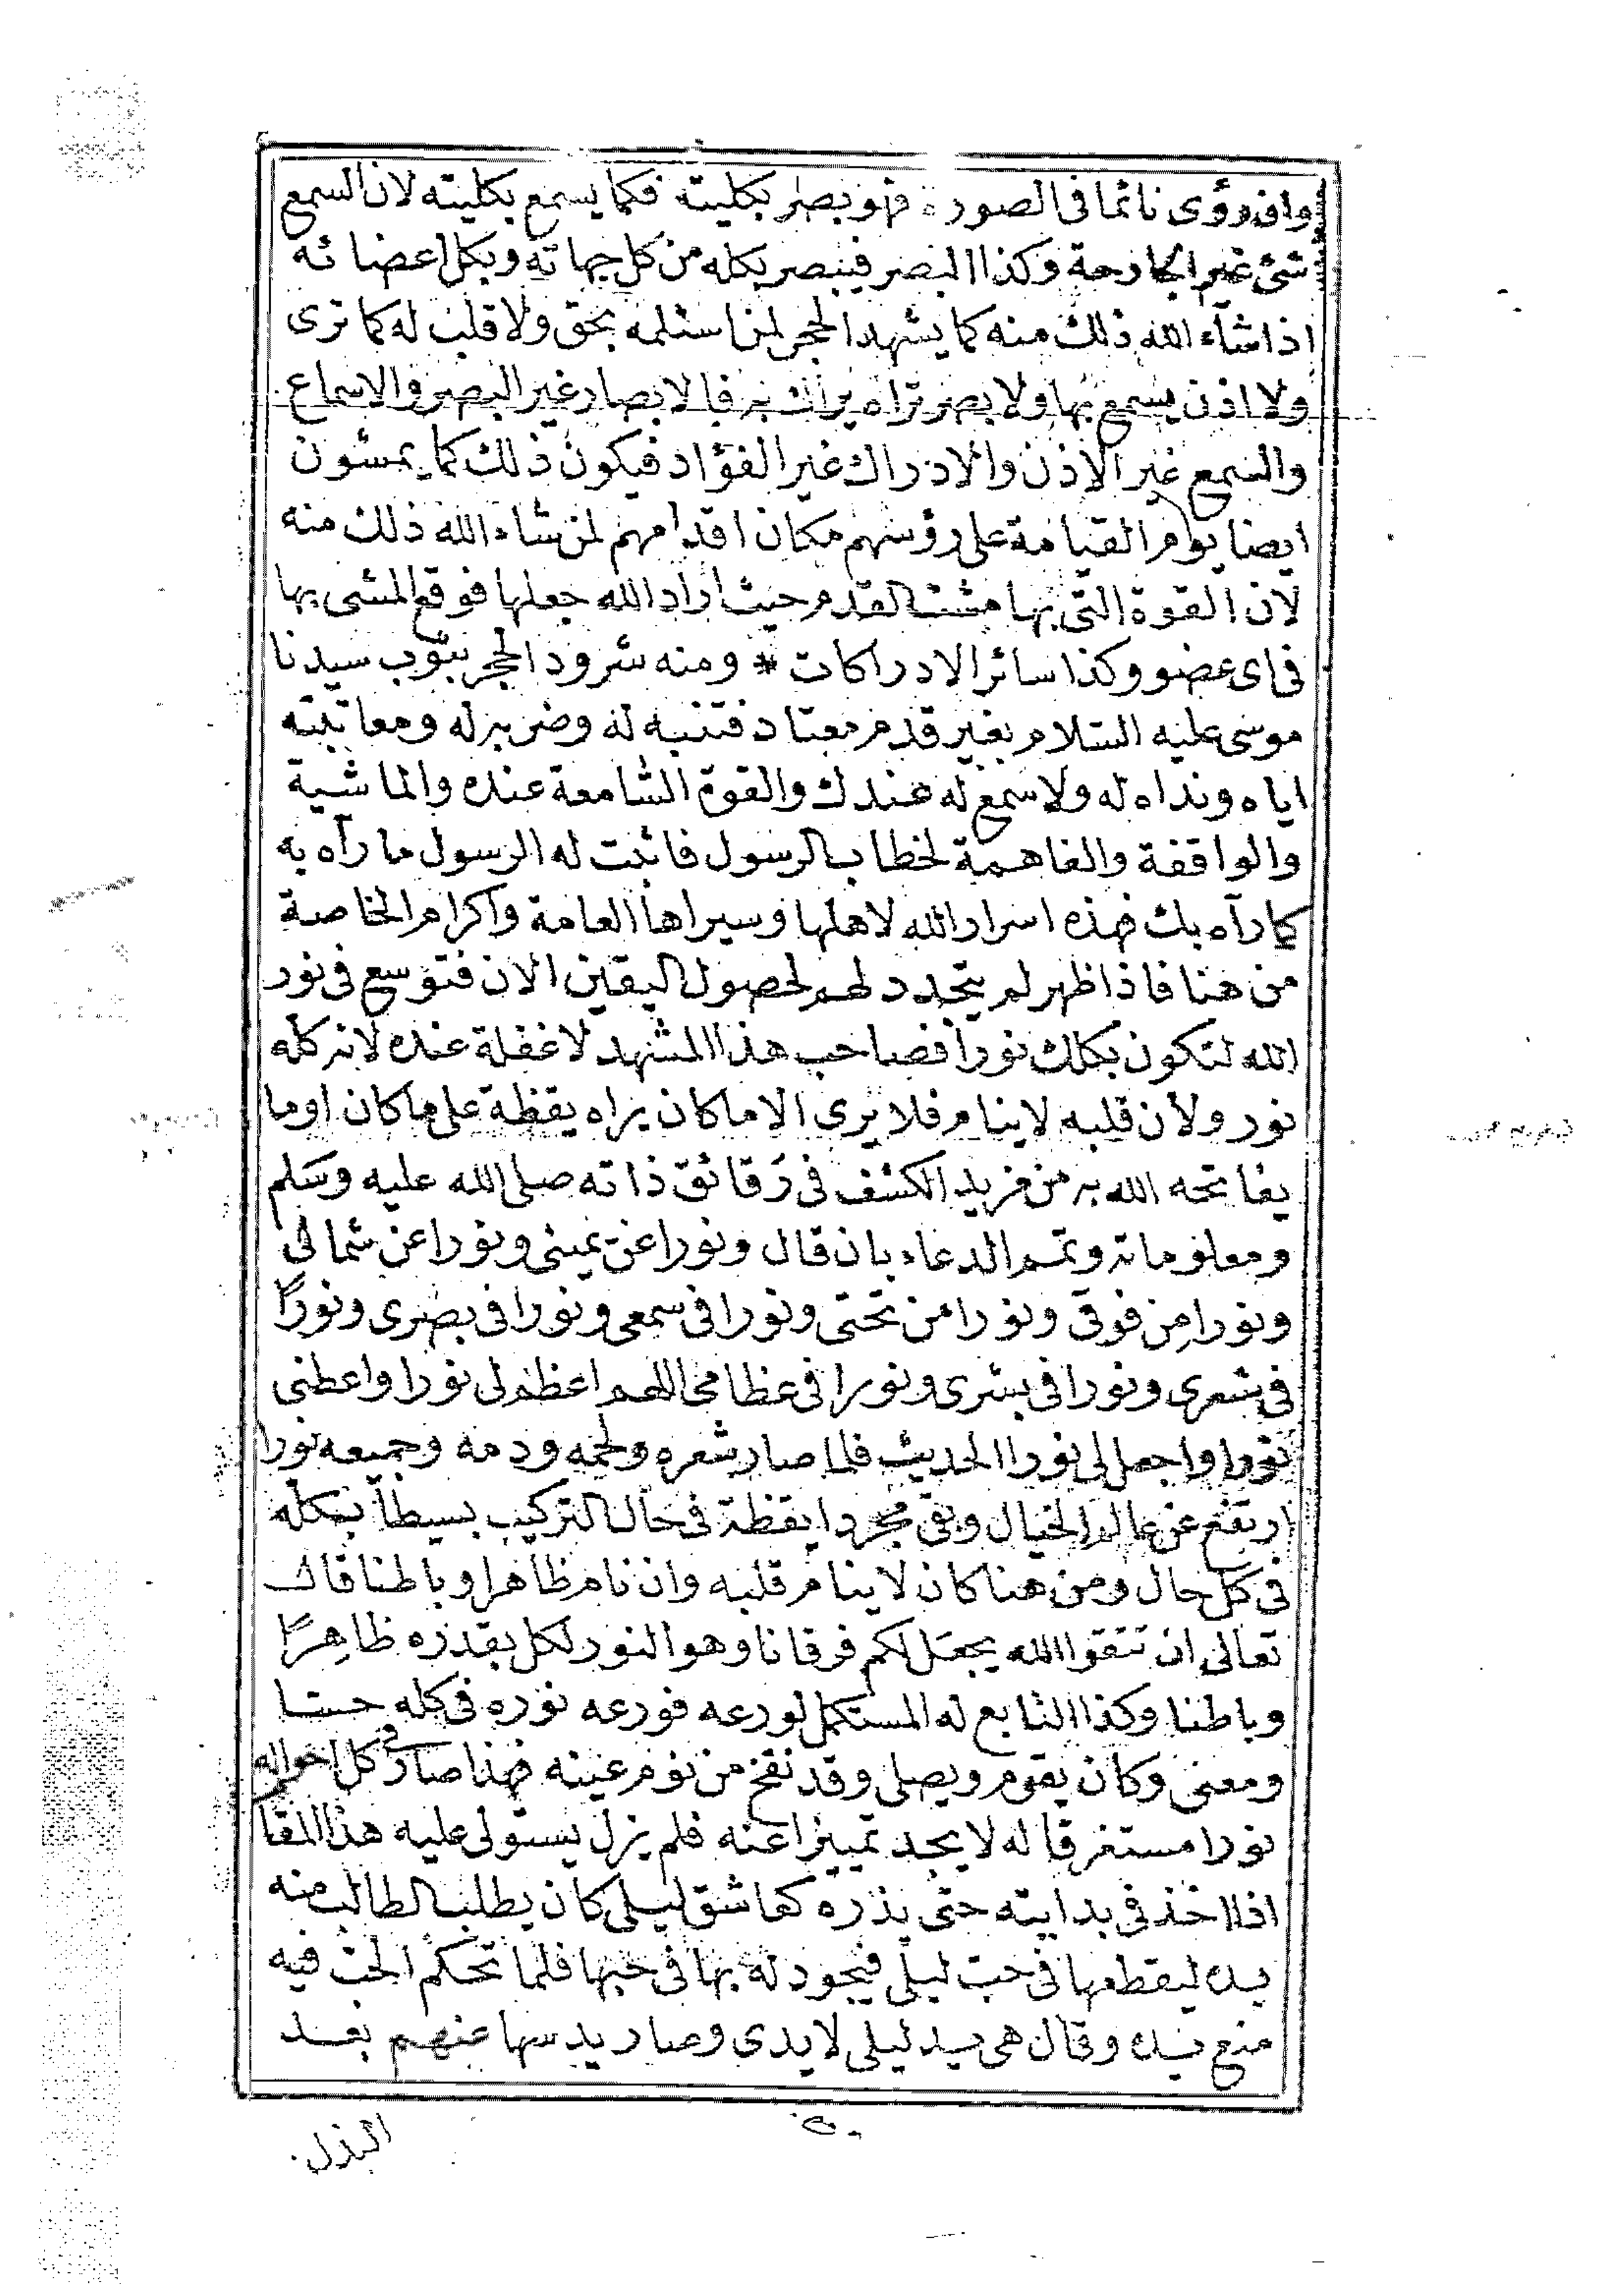 وان رؤى نائما فى الصورة فهو بصير بكليته فكما يسمع بكليته لان السمع
شئ غير الجارحة وكذا البصر فيبصر بكله من كل جهاته وبكل اعضائه
اذا شآء الله ذلك منه كما يشهد الحجر لمن استلمه بحق ولا قلب له كما ترى
ولا اذن يسمع بها ولا بصر تراه يراك به فالابصار غير البصر والاسماع
والسمع غير الاذن والادراك غير الفؤاد فيكون ذلك كما يمشون
ايضا يوم القيامة على رؤسهم مكان اقدامهم لمن شاء الله ذلك منه
لان القوة التى بها مشت القدم حيث اراد الله جعلها فوقع المشى بها
فى اى عضو وكذا سائر الادراكات * ومنه شرود الحجر بثوب سيدنا
موسى عليه السلام بغير قدم معتاد فتنبه له وضربه له ومعاتبته
اياه ونداه له ولا سمع له عندك والقوة السامعة عنده والماشية
والواقفة والفاهمة لخطاب الرسول فاثبت له الرسول ما رآه به
كما رآه بك فهذه اسرار الله لاهلها وسيراها العامة واكرام الخاصة
من هنا فاذا ظهر لم يتجدد لهم لحصول اليقين الان فتوسع فى نور
الله لتكون بكلك نورا فصاحب هذا المشهد لا غفلة عنده لانه كله
نور ولأن قلبه لا ينام فلا يرى الا ما كان يراه يقظة على ما كان او ما
يفاتحه الله به من مزيد الكشف فى رقائق ذاته صلى الله عليه وسلم
ومعلوماته وتمم الدعاء بان قال ونورا عن يمينى ونورا عن شمالى
ونورا من فوقى ونورا من تحتى ونورا فى سمعى ونورا فى بصرى ونورًا
فى شعرى ونورا فى بشرى ونورا فى عظامى اللهم اعظم لى نورا واعطنى
نورا واجعل لى نورا الحديث فلما صار شعره ولحمه ودمه وجميعه نورا
ارتفع عن عالم الخيال وبقى مجردا يقظة فى حال التركيب بسيطا بكله
فى كل حال ومن هنا كان لا ينام قلبه وان نام ظاهرا وباطنا قال
تعالى ان تتقوا الله يجعل لكم فرقانا وهو النور لكل بقدره ظاهرًا
وباطنا وكذا التابع له المستكمل لورعه فورعه نوره فى كله حسا
ومعنى وكان يقوم ويصلى وقد نفخ من نوم عينيه فهذا صار فى كل احواله
نورا مستغرقا له لا يجد تمييزا عنه فلم يزل يستولى عليه هذا المقا
اذا اخذ فى بدايته حتى يذره كعاشق ليلى كان يطلب الطالب منه
يده ليقطعها فى حب ليلى فيجود له بها فى حبها فلما تحكم الحب فيه
منع يده وقال هى يد ليلى لا يدى وصار يدسها عنهم بعد
البذل